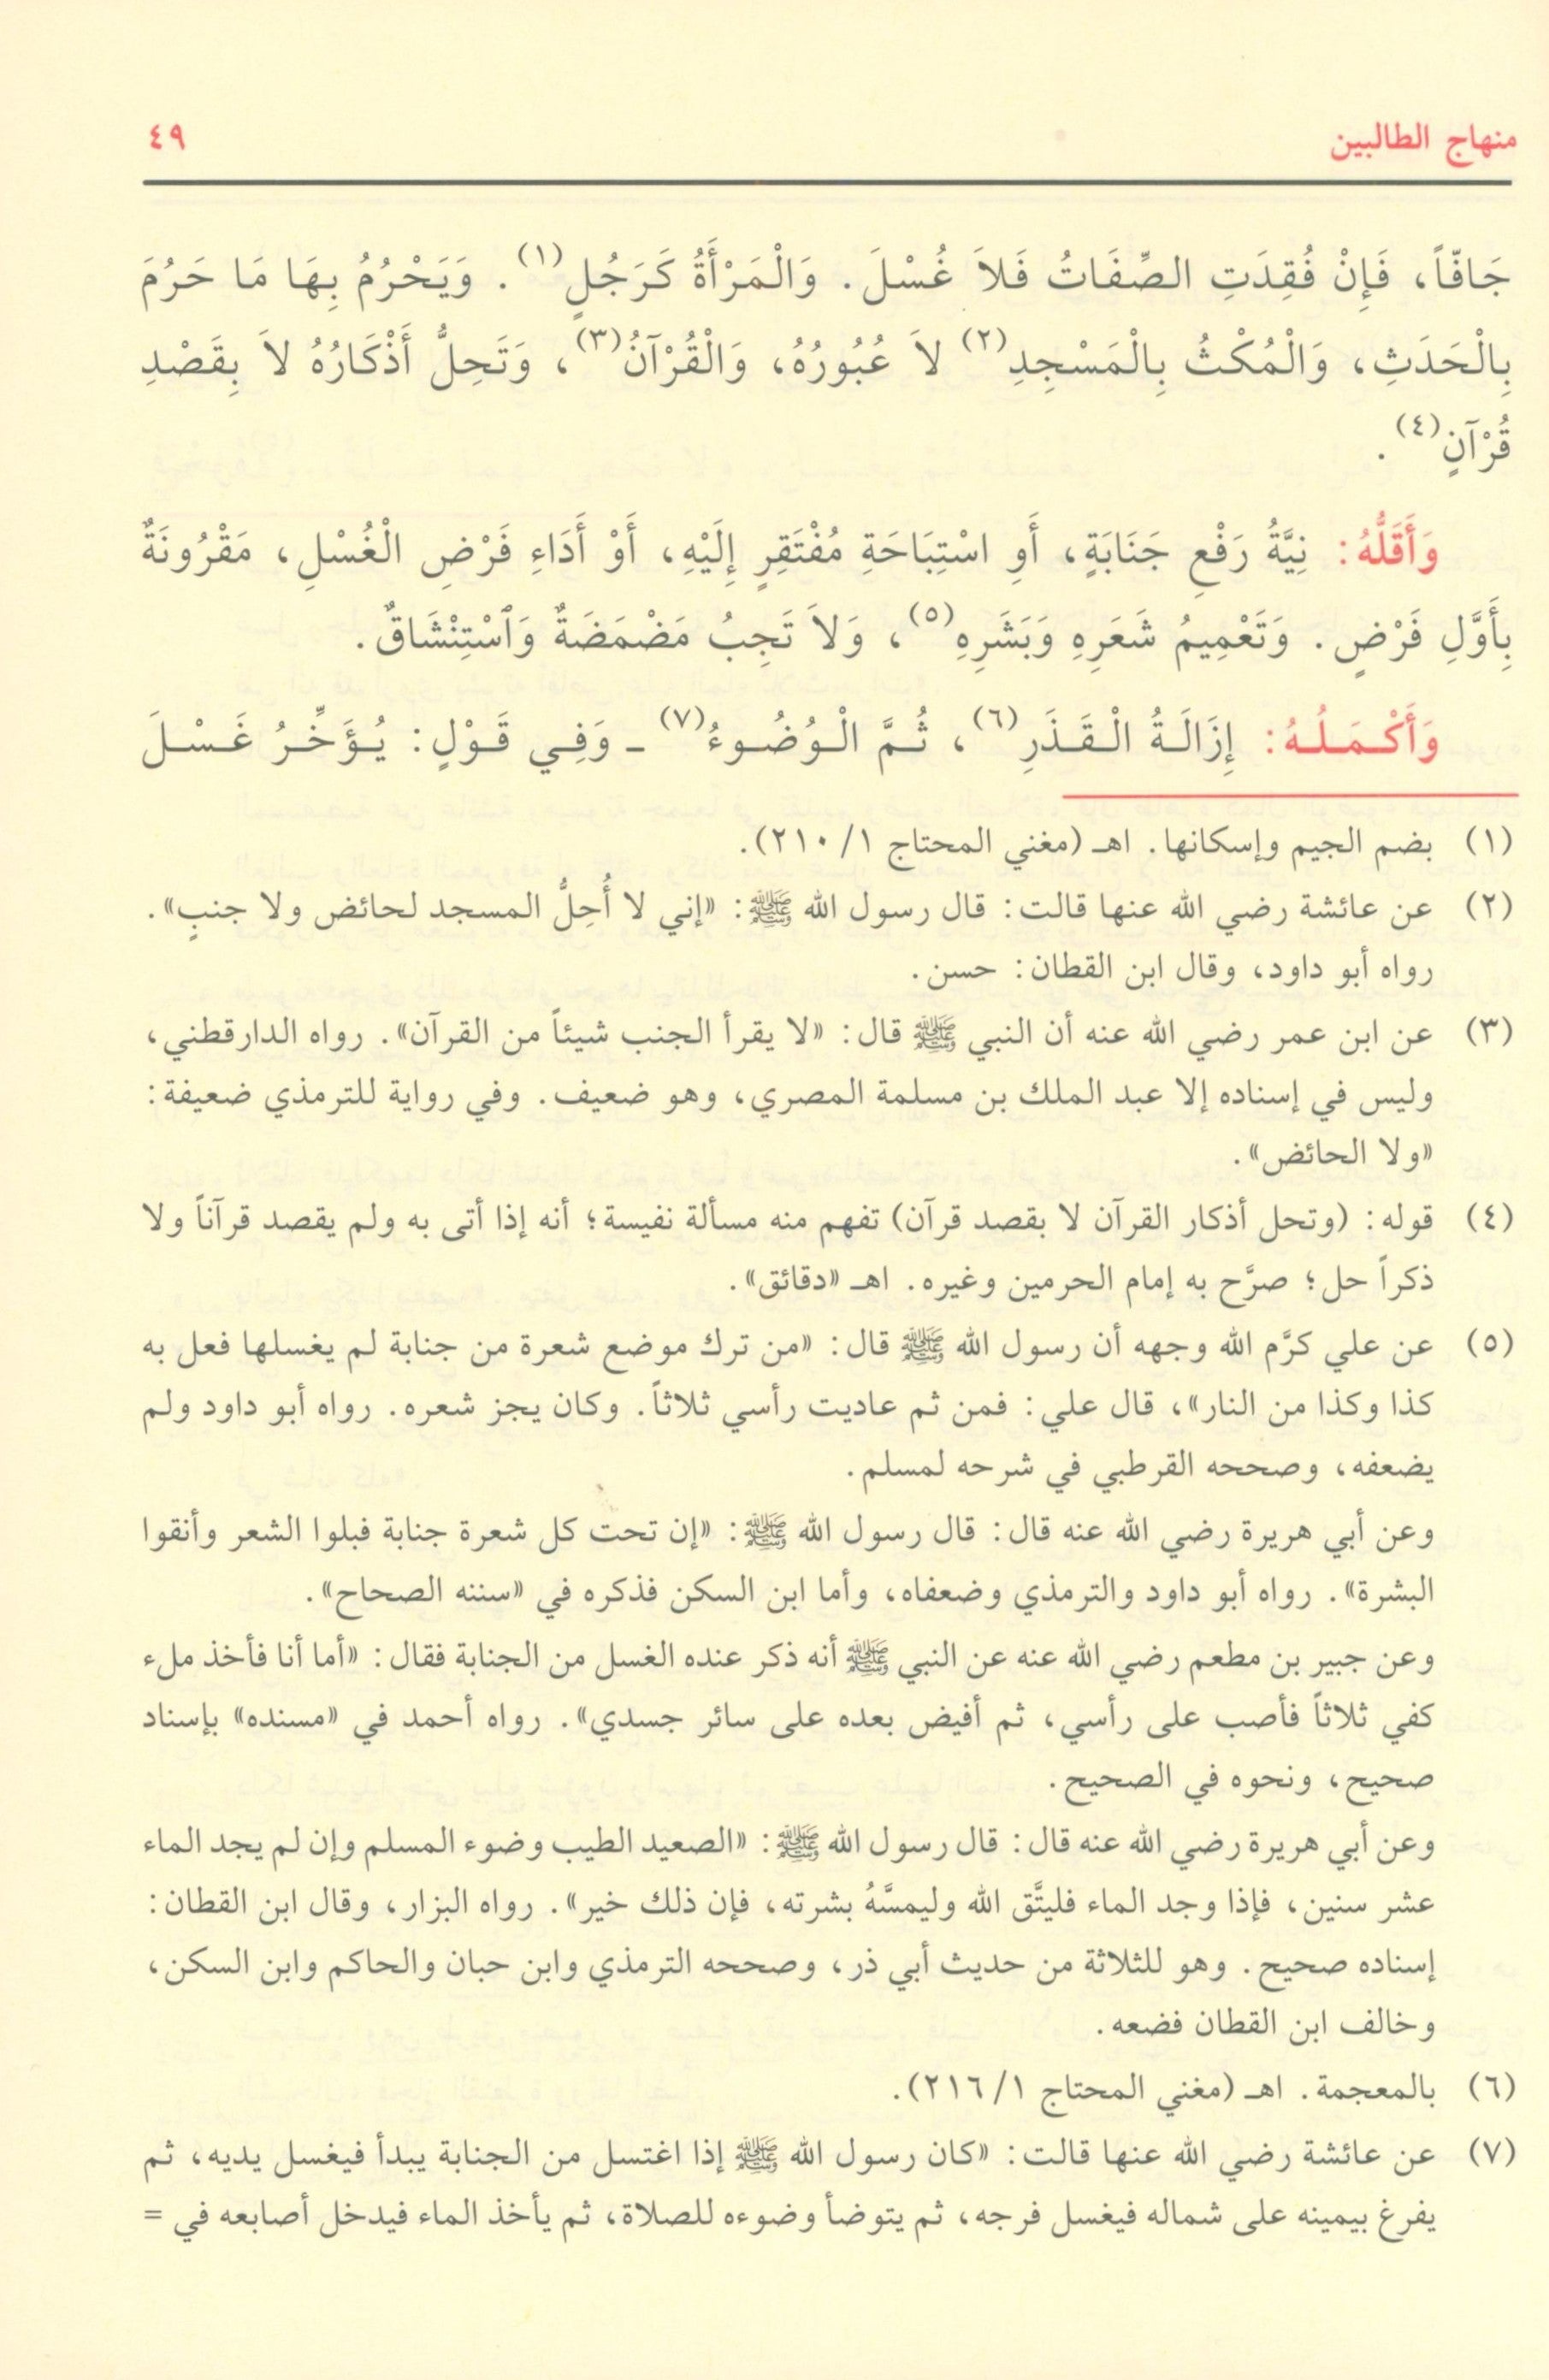 منهاج الطالبين ٤٩
جَافّاً، فَإِنْ فُقِدَتِ الصِّفَاتُ فَلاَ غُسْلَ. وَالْمَرْأَةُ كَرَجُلٍ(١). وَيَحْرُمُ بِهَا مَا حَرُمَ
بِالْحَدَثِ، وَالْمُكْثُ بِالْمَسْجِدِ(٢) لاَ عُبُورُهُ، وَالْقُرْآنُ(٣)، وَتَحِلُّ أَذْكَارُهُ لاَ بِقَصْدِ
قُرْآنٍ(٤).
وَأَقَلُّهُ: نِيَّةُ رَفْعِ جَنَابَةٍ، أَوِ اسْتِبَاحَةِ مُفْتَقِرٍ إِلَيْهِ، أَوْ أَدَاءِ فَرْضِ الْغُسْلِ، مَقْرُونَةٌ
بِأَوَّلِ فَرْضٍ. وَتَعْمِيمُ شَعَرِهِ وَبَشَرِهِ(٥)، وَلاَ تَجِبُ مَضْمَضَةٌ وَٱسْتِنْشَاقٌ.
وَأَكْمَلُهُ: إِزَالَةُ الْقَذَرِ(٦)، ثُمَّ الْوُضُوءُ(٧) ـ وَفِي قَوْلٍ: يُؤَخِّرُ غَسْلَ
(١) بضم الجيم وإسكانها. اهـ (مغني المحتاج ١/ ٢١٠).
(٢) عن عائشة رضي الله عنها قالت: قال رسول الله ﷺ: «إني لا أُحِلُّ المسجد لحائض ولا جنبٍ».
رواه أبو داود، وقال ابن القطان: حسن.
(٣) عن ابن عمر رضي الله عنه أن النبي ﷺ قال: «لا يقرأ الجنب شيئاً من القرآن». رواه الدارقطني،
وليس في إسناده إلا عبد الملك بن مسلمة المصري، وهو ضعيف. وفي رواية للترمذي ضعيفة:
«ولا الحائض».
(٤) قوله: (وتحل أذكار القرآن لا بقصد قرآن) تفهم منه مسألة نفيسة؛ أنه إذا أتى به ولم يقصد قرآناً ولا
ذكراً حل؛ صرَّح به إمام الحرمين وغيره. اهـ «دقائق».
(٥) عن علي كرَّم الله وجهه أن رسول الله ﷺ قال: «من ترك موضع شعرة من جنابة لم يغسلها فعل به
كذا وكذا من النار»، قال علي: فمن ثم عاديت رأسي ثلاثاً. وكان يجز شعره. رواه أبو داود ولم
يضعفه، وصححه القرطبي في شرحه لمسلم.
وعن أبي هريرة رضي الله عنه قال: قال رسول الله ﷺ: «إن تحت كل شعرة جنابة فبلوا الشعر وأنقوا
البشرة». رواه أبو داود والترمذي وضعفاه، وأما ابن السكن فذكره في «سننه الصحاح».
وعن جبير بن مطعم رضي الله عنه عن النبي ﷺ أنه ذكر عنده الغسل من الجنابة فقال: «أما أنا فأخذ ملء
كفي ثلاثاً فأصب على رأسي، ثم أفيض بعده على سائر جسدي». رواه أحمد في «مسنده» بإسناد
صحيح، ونحوه في الصحيح.
وعن أبي هريرة رضي الله عنه قال: قال رسول الله ﷺ: «الصعيد الطيب وضوء المسلم وإن لم يجد الماء
عشر سنين، فإذا وجد الماء فليتَّق الله وليمسَّهُ بشرته، فإن ذلك خير». رواه البزار، وقال ابن القطان:
إسناده صحيح. وهو للثلاثة من حديث أبي ذر، وصححه الترمذي وابن حبان والحاكم وابن السكن،
وخالف ابن القطان فضعه.
(٦) بالمعجمة. اهـ (مغني المحتاج ١/ ٢١٦).
(٧) عن عائشة رضي الله عنها قالت: «كان رسول الله ﷺ إذا اغتسل من الجنابة يبدأ فيغسل يديه، ثم
يفرغ بيمينه على شماله فيغسل فرجه، ثم يتوضأ وضوءه للصلاة، ثم يأخذ الماء فيدخل أصابعه في =